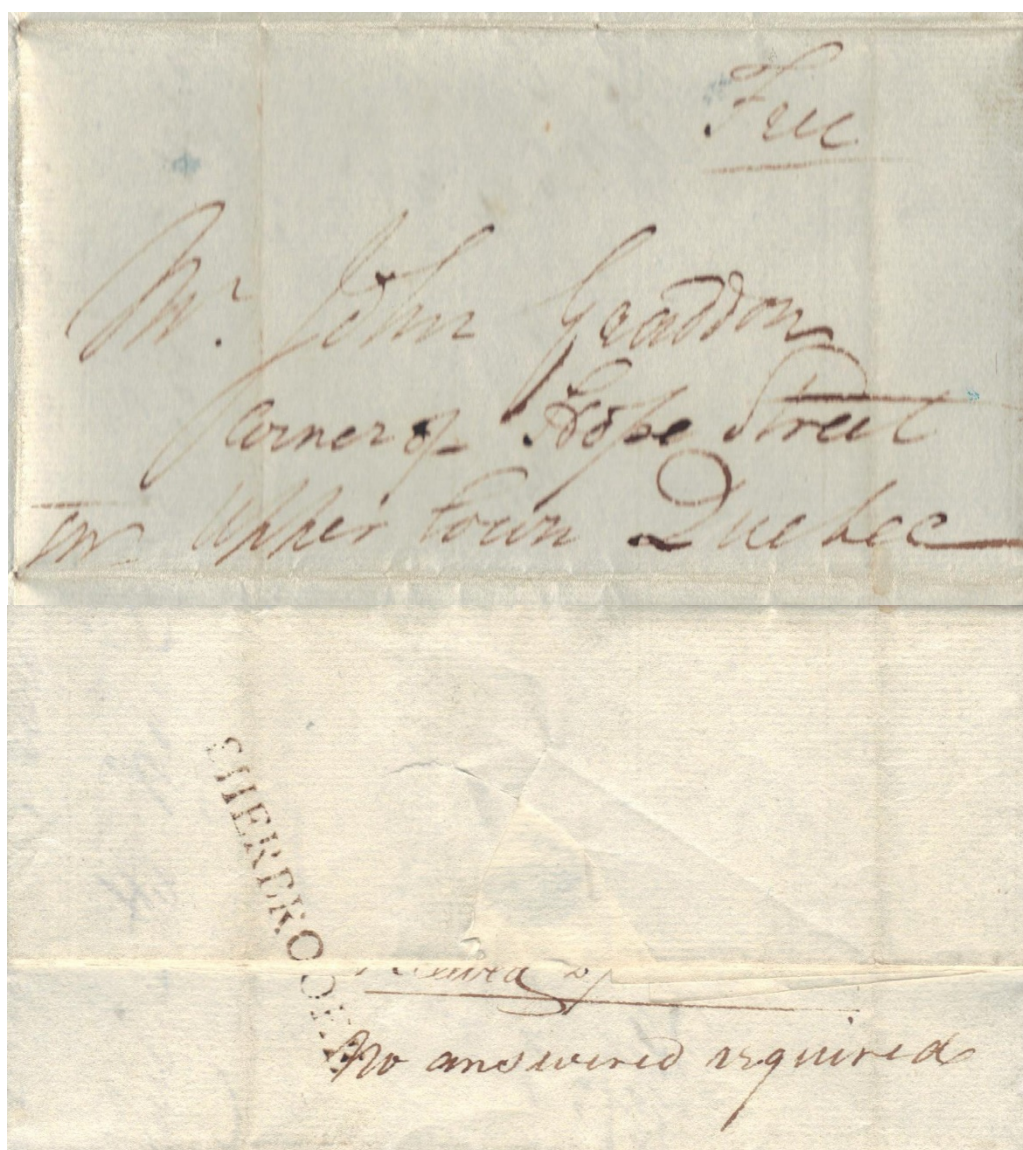 Free
Mr. John Graddon
Corner of Hope Street
Upper town Quebec
SHERBROOKE
No answered required